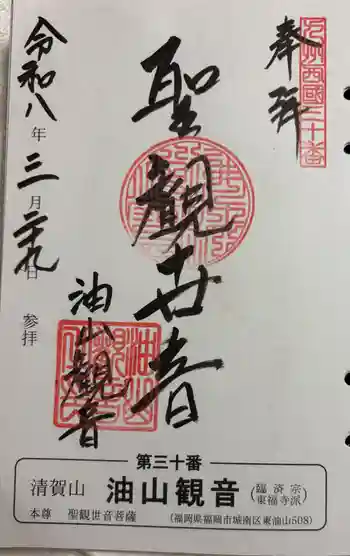 奉拝
九州西國三十番
聖観世音
油山観音
令和八年三月二十九日 参拝
第三十番
清賀山 油山観音 (臨済宗東福寺派)
本尊 聖観世音菩薩 (福岡県福岡市城南区東油山508)